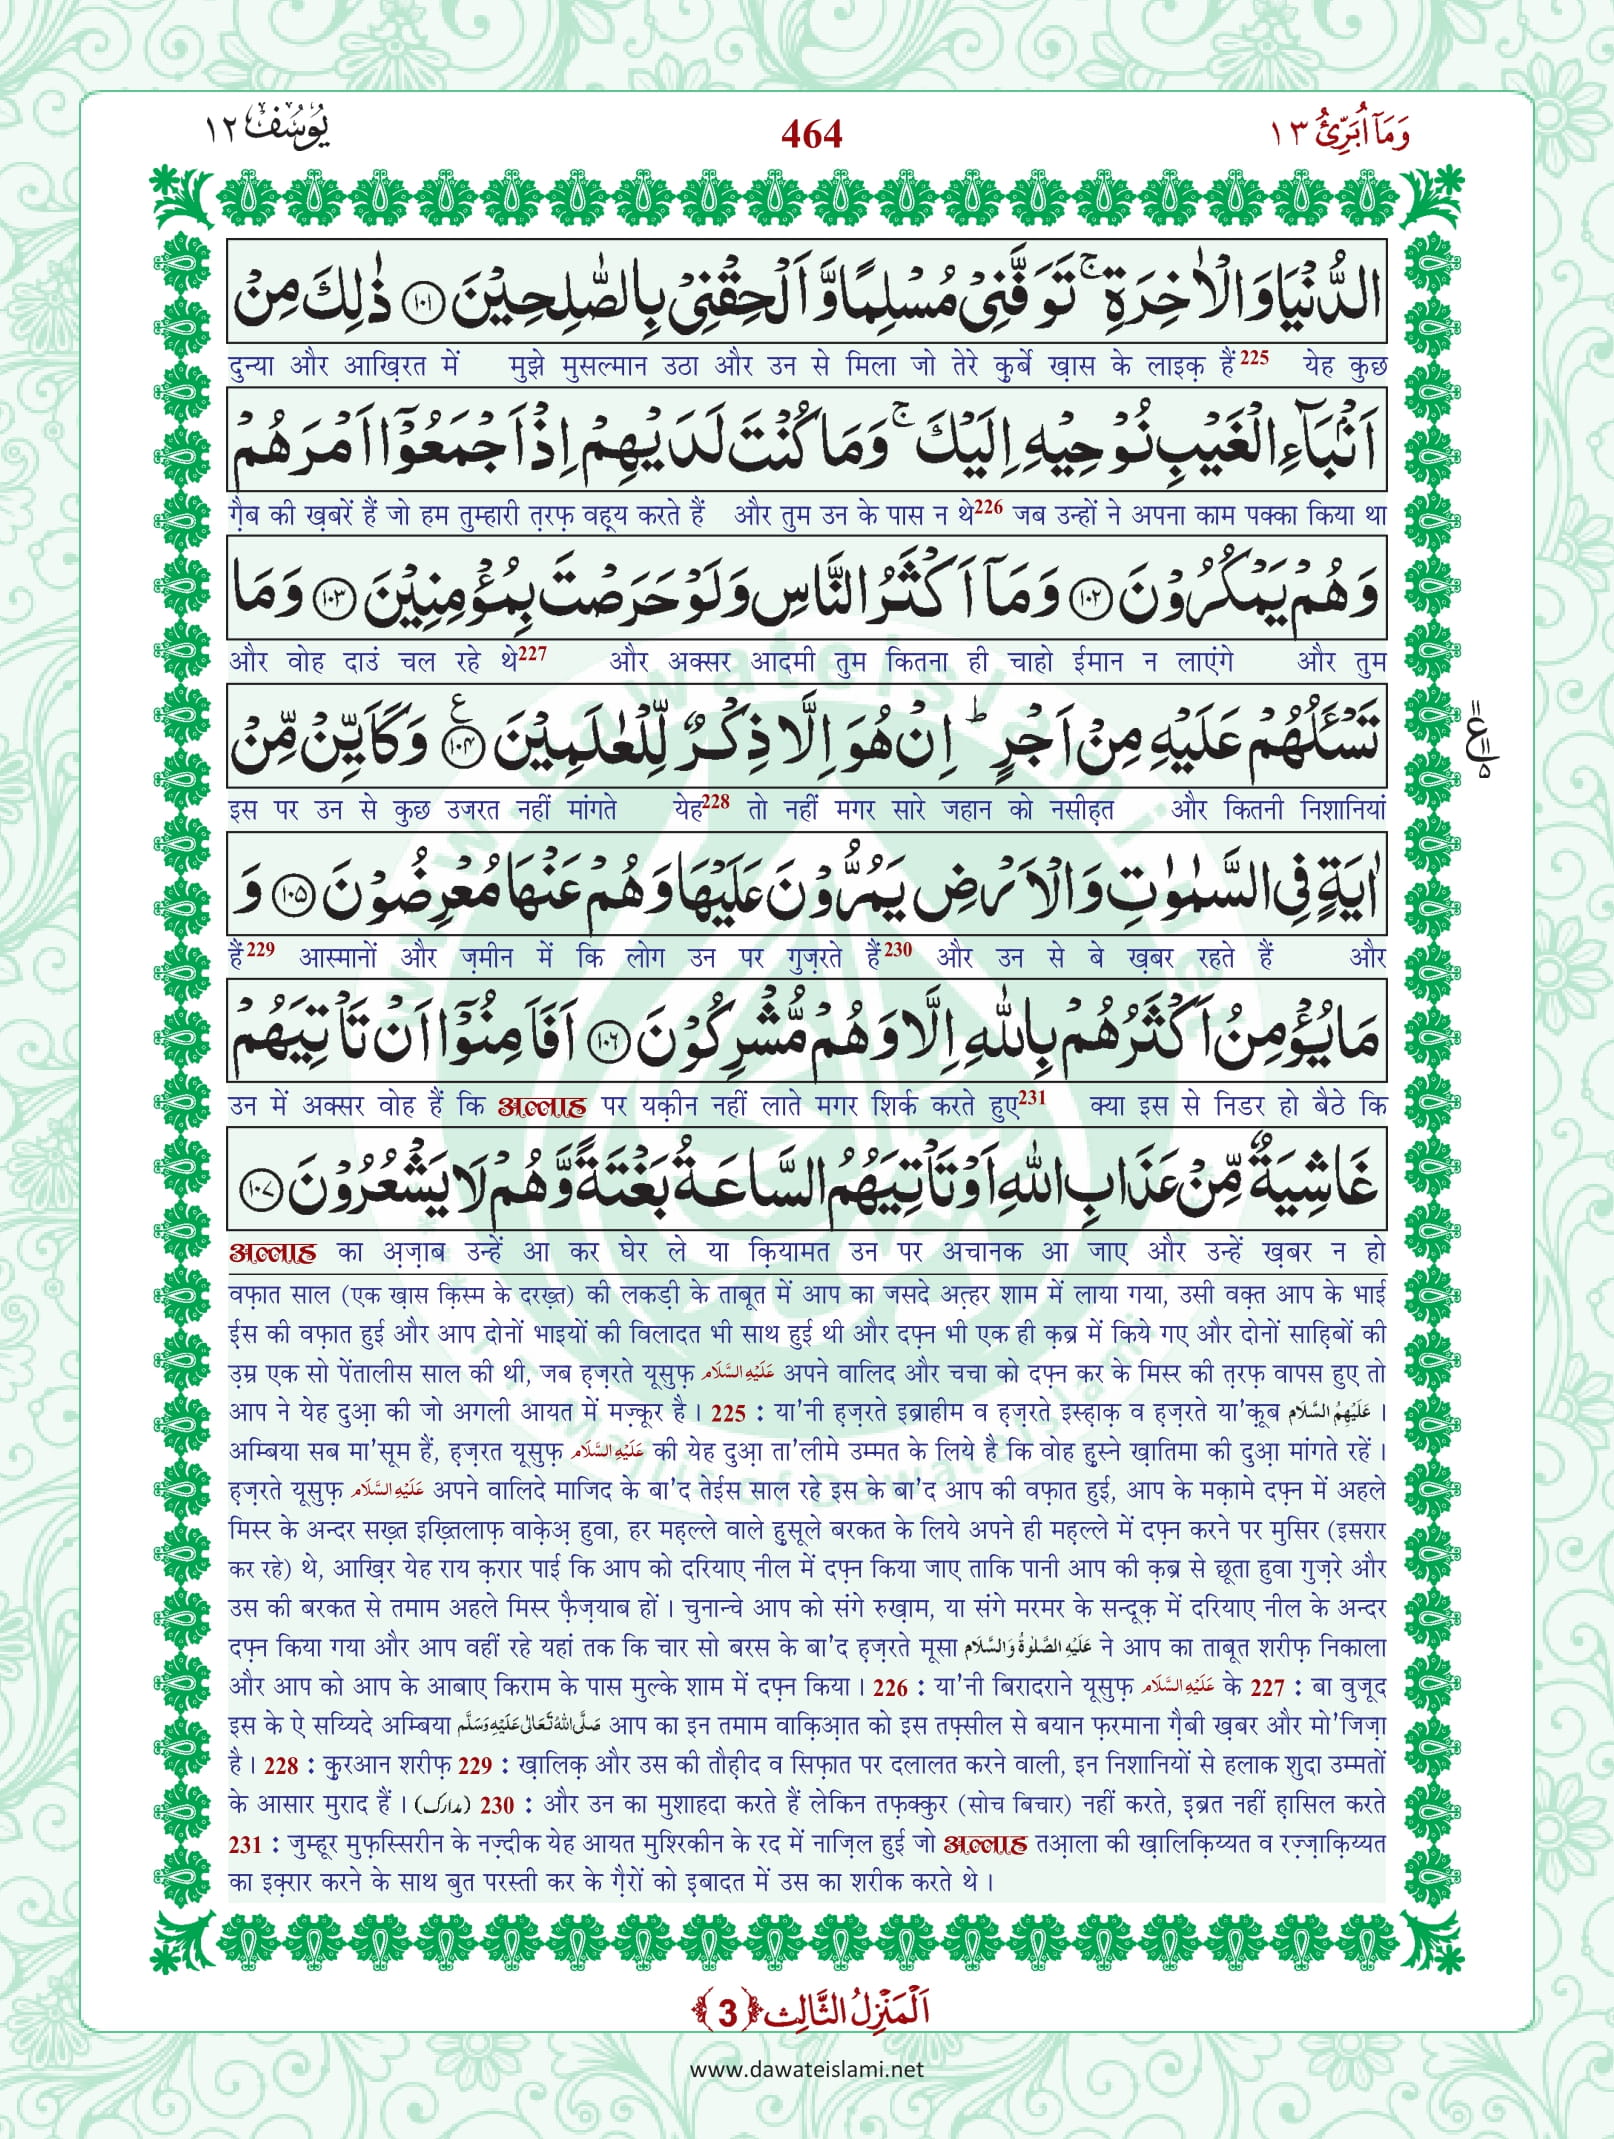 يُوْسُف ١٢
464
وَمَآ اُبَرِّئُ ١٣
الدُّنْيَا وَالْاٰخِرَةِ ۚ تَوَفَّنِیْ مُسْلِمًا وَّ اَلْحِقْنِیْ بِالصّٰلِحِیْنَ ﴿۱۰۱﴾ ذٰلِكَ مِنْ
दुन्या और आख़िरत में मुझे मुसल्मान उठा और उन से मिला जो तेरे क़ुर्बे ख़ास के लाइक़ हैं225 येह कुछ
اَنْۢبَآءِ الْغَیْبِ نُوْحِیْهِ اِلَیْكَ ۚ وَمَا كُنْتَ لَدَیْهِمْ اِذْ اَجْمَعُوْۤا اَمْرَهُمْ
ग़ैब की ख़बरें हैं जो हम तुम्हारी त़रफ़ वह़्य करते हैं और तुम उन के पास न थे226 जब उन्हों ने अपना काम पक्का किया था
وَهُمْ یَمْكُرُوْنَ ﴿۱۰۲﴾ وَمَاۤ اَكْثَرُ النَّاسِ وَلَوْ حَرَصْتَ بِمُؤْمِنِیْنَ ﴿۱۰۳﴾ وَمَا
और वोह दाउं चल रहे थे227 और अक्सर आदमी तुम कितना ही चाहो ईमान न लाएंगे और तुम
تَسْـَٔلُهُمْ عَلَیْهِ مِنْ اَجْرٍ ؕ اِنْ هُوَ اِلَّا ذِكْرٌ لِّلْعٰلَمِیْنَ ﴿۱۰۴﴾ ع وَكَاَیِّنْ مِّنْ
इस पर उन से कुछ उजरत नहीं मांगते येह228 तो नहीं मगर सारे जहान को नसीह़त और कितनी निशानियां
اٰیَةٍ فِی السَّمٰوٰتِ وَالْاَرْضِ یَمُرُّوْنَ عَلَیْهَا وَهُمْ عَنْهَا مُعْرِضُوْنَ ﴿۱۰۵﴾ وَ
हैं229 आस्मानों और ज़मीन में कि लोग उन पर गुज़रते हैं230 और उन से बे ख़बर रहते हैं और
مَا یُؤْمِنُ اَكْثَرُهُمْ بِاللّٰهِ اِلَّا وَهُمْ مُّشْرِكُوْنَ ﴿۱۰۶﴾ اَفَاَمِنُوْۤا اَنْ تَاْتِیَهُمْ
उन में अक्सर वोह हैं कि अल्लाह पर यक़ीन नहीं लाते मगर शिर्क करते हुए231 क्या इस से निडर हो बैठे कि
غَاشِیَةٌ مِّنْ عَذَابِ اللّٰهِ اَوْ تَاْتِیَهُمُ السَّاعَةُ بَغْتَةً وَّهُمْ لَا یَشْعُرُوْنَ ﴿۱۰۷﴾
अल्लाह का अ़ज़ाब उन्हें आ कर घेर ले या क़ियामत उन पर अचानक आ जाए और उन्हें ख़बर न हो
वफ़ात साल (एक ख़ास क़िस्म के दरख़्त) की लकड़ी के ताबूत में आप का जसदे अत़्हर शाम में लाया गया, उसी वक़्त आप के भाई
ईस की वफ़ात हुई और आप दोनों भाइयों की विलादत भी साथ हुई थी और दफ़्न भी एक ही क़ब्र में किये गए और दोनों साह़िबों की
उम्र एक सो पेंतालीस साल की थी, जब ह़ज़रते यूसुफ़ عَلَیْهِ السَّلَام अपने वालिद और चचा को दफ़्न कर के मिस्र की त़रफ़ वापस हुए तो
आप ने येह दुआ़ की जो अगली आयत में मज़्कूर है। 225 : या'नी ह़ज़रते इब्राहीम व ह़ज़रते इस्ह़ाक़ व ह़ज़रते या'क़ूब عَلَیْهِمُ السَّلَام ।
अम्बिया सब मा'सूम हैं, ह़ज़रत यूसुफ़ عَلَیْهِ السَّلَام की येह दुआ़ ता'लीमे उम्मत के लिये है कि वोह हुस्ने ख़ातिमा की दुआ़ मांगते रहें ।
ह़ज़रते यूसुफ़ عَلَیْهِ السَّلَام अपने वालिदे माजिद के बा'द तेईस साल रहे इस के बा'द आप की वफ़ात हुई, आप के मक़ामे दफ़्न में अहले
मिस्र के अन्दर सख़्त इख़्तिलाफ़ वाक़ेअ़ हुवा, हर महल्ले वाले ह़ुसूले बरकत के लिये अपने ही महल्ले में दफ़्न करने पर मुसिर (इसरार
कर रहे) थे, आख़िर येह राय क़रार पाई कि आप को दरियाए नील में दफ़्न किया जाए ताकि पानी आप की क़ब्र से छूता हुवा गुज़रे और
उस की बरकत से तमाम अहले मिस्र फ़ैज़याब हों । चुनान्चे आप को संगे रुख़ाम, या संगे मरमर के सन्दूक़ में दरियाए नील के अन्दर
दफ़्न किया गया और आप वहीं रहे यहां तक कि चार सो बरस के बा'द ह़ज़रते मूसा عَلَیْهِ الصَّلٰوةُ وَالسَّلَام ने आप का ताबूत शरीफ़ निकाला
और आप को आप के आबाए किराम के पास मुल्के शाम में दफ़्न किया । 226 : या'नी बिरादराने यूसुफ़ عَلَیْهِ السَّلَام के 227 : बा वुजूद
इस के ऐ सय्यिदे अम्बिया صَلَّى اللهُ تَعَالٰى عَلَیْهِ وَسَلَّم आप का इन तमाम वाक़िआ़त को इस तफ़्सील से बयान फ़रमाना ग़ैबी ख़बर और मो'जिज़ा
है । 228 : क़ुरआन शरीफ़ 229 : ख़ालिक़ और उस की तौह़ीद व सिफ़ात पर दलालत करने वाली, इन निशानियों से हलाक शुदा उम्मतों
के आसार मुराद हैं । (مدارک) 230 : और उन का मुशाहदा करते हैं लेकिन तफ़क्कुर (सोच बिचार) नहीं करते, इ़ब्रत नहीं ह़ासिल करते
231 : जुम्हूर मुफ़स्सिरीन के नज़्दीक येह आयत मुश्रिकीन के रद में नाज़िल हुई जो अल्लाह तआ़ला की ख़ालिक़िय्यत व रज़्ज़ाक़िय्यत
का इक़्रार करने के साथ बुत परस्ती कर के ग़ैरों को इ़बादत में उस का शरीक करते थे ।
اَلْمَنْزِلُ الثَّالِث ﴿3﴾
www.dawateislami.net